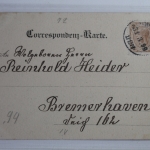 Correspondenz-Karte.
Wolgeboren Herrn
Reinhold Heider
Bremerhaven
Deich 162
94